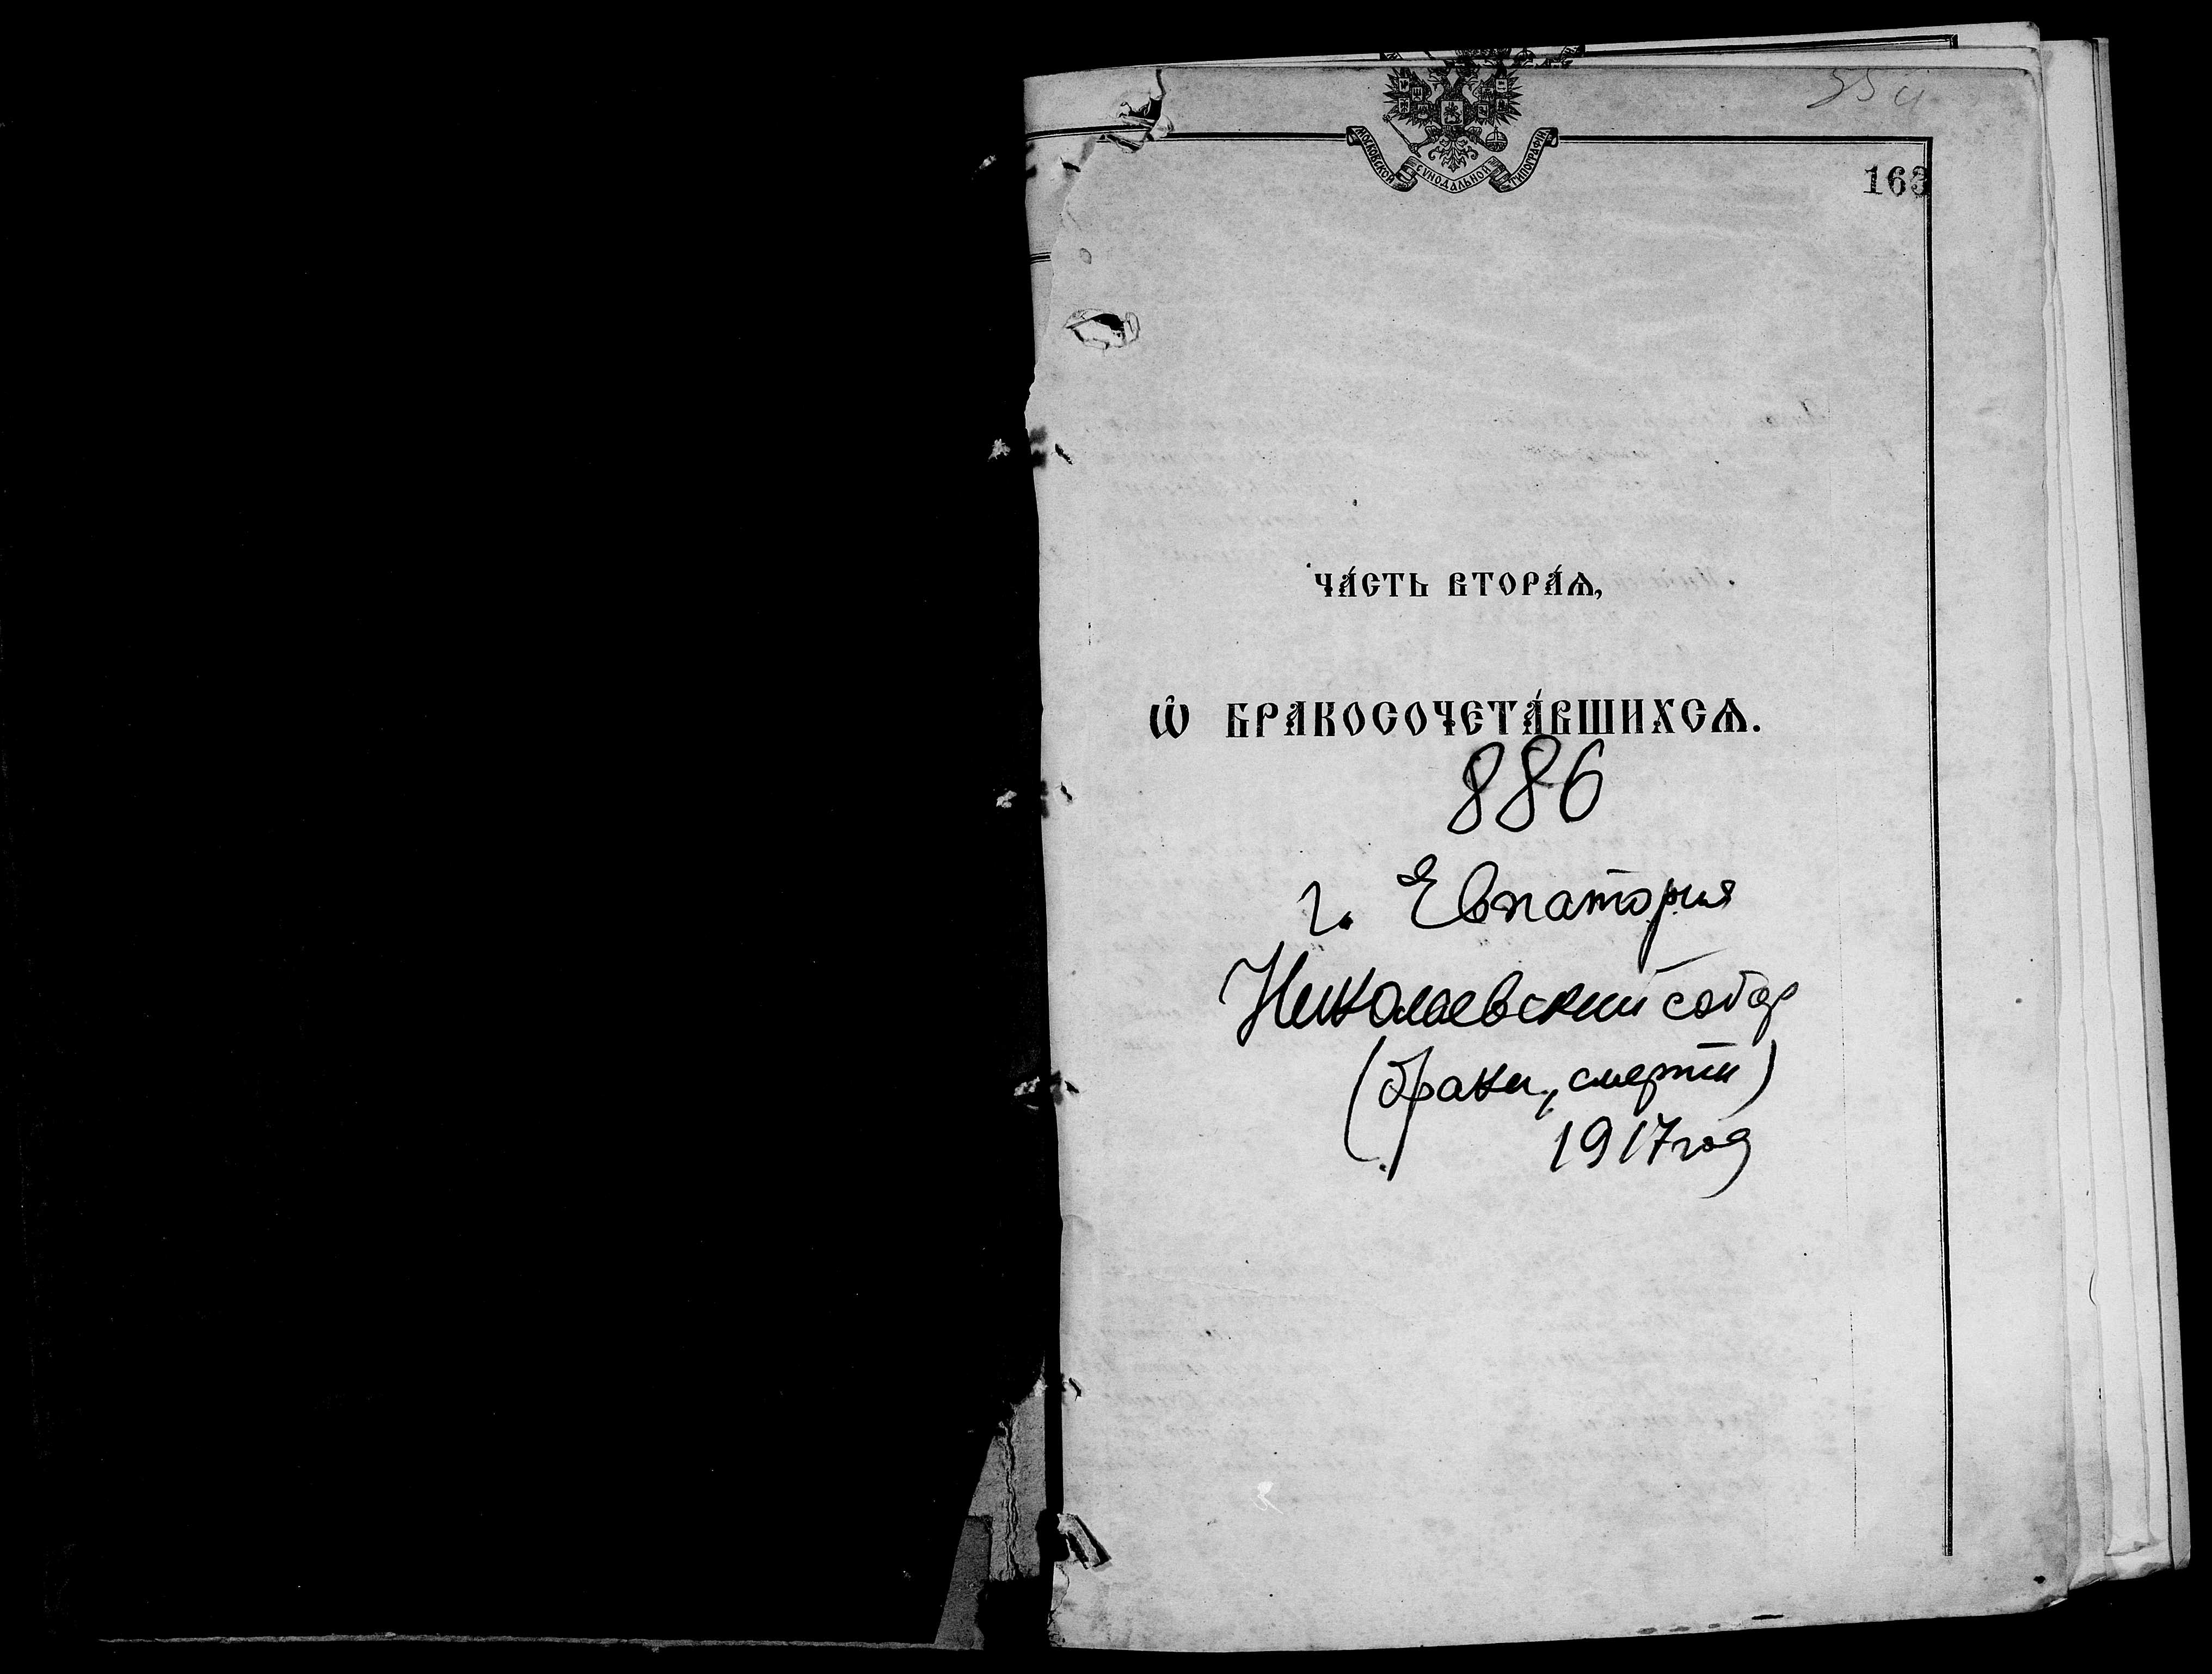 МОСКОВСКОЙ СѴНОДАЛЬНОЙ ТИПОГРАФІИ.
163
ЧА́СТЬ ВТОРА́Ѧ,
Ѡ҆ БРАКОСОЧЕТА́ВШИХСѦ.
886
г. Евпатория
Николаевский собор
(браки, смерти)
1917 год